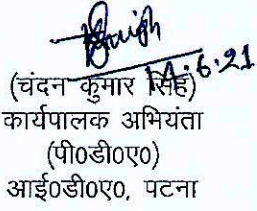 14.6.21
(चंदन कुमार सिंह)
कार्यपालक अभियंता
(पी०डी०ए०)
आई०डी०ए०, पटना